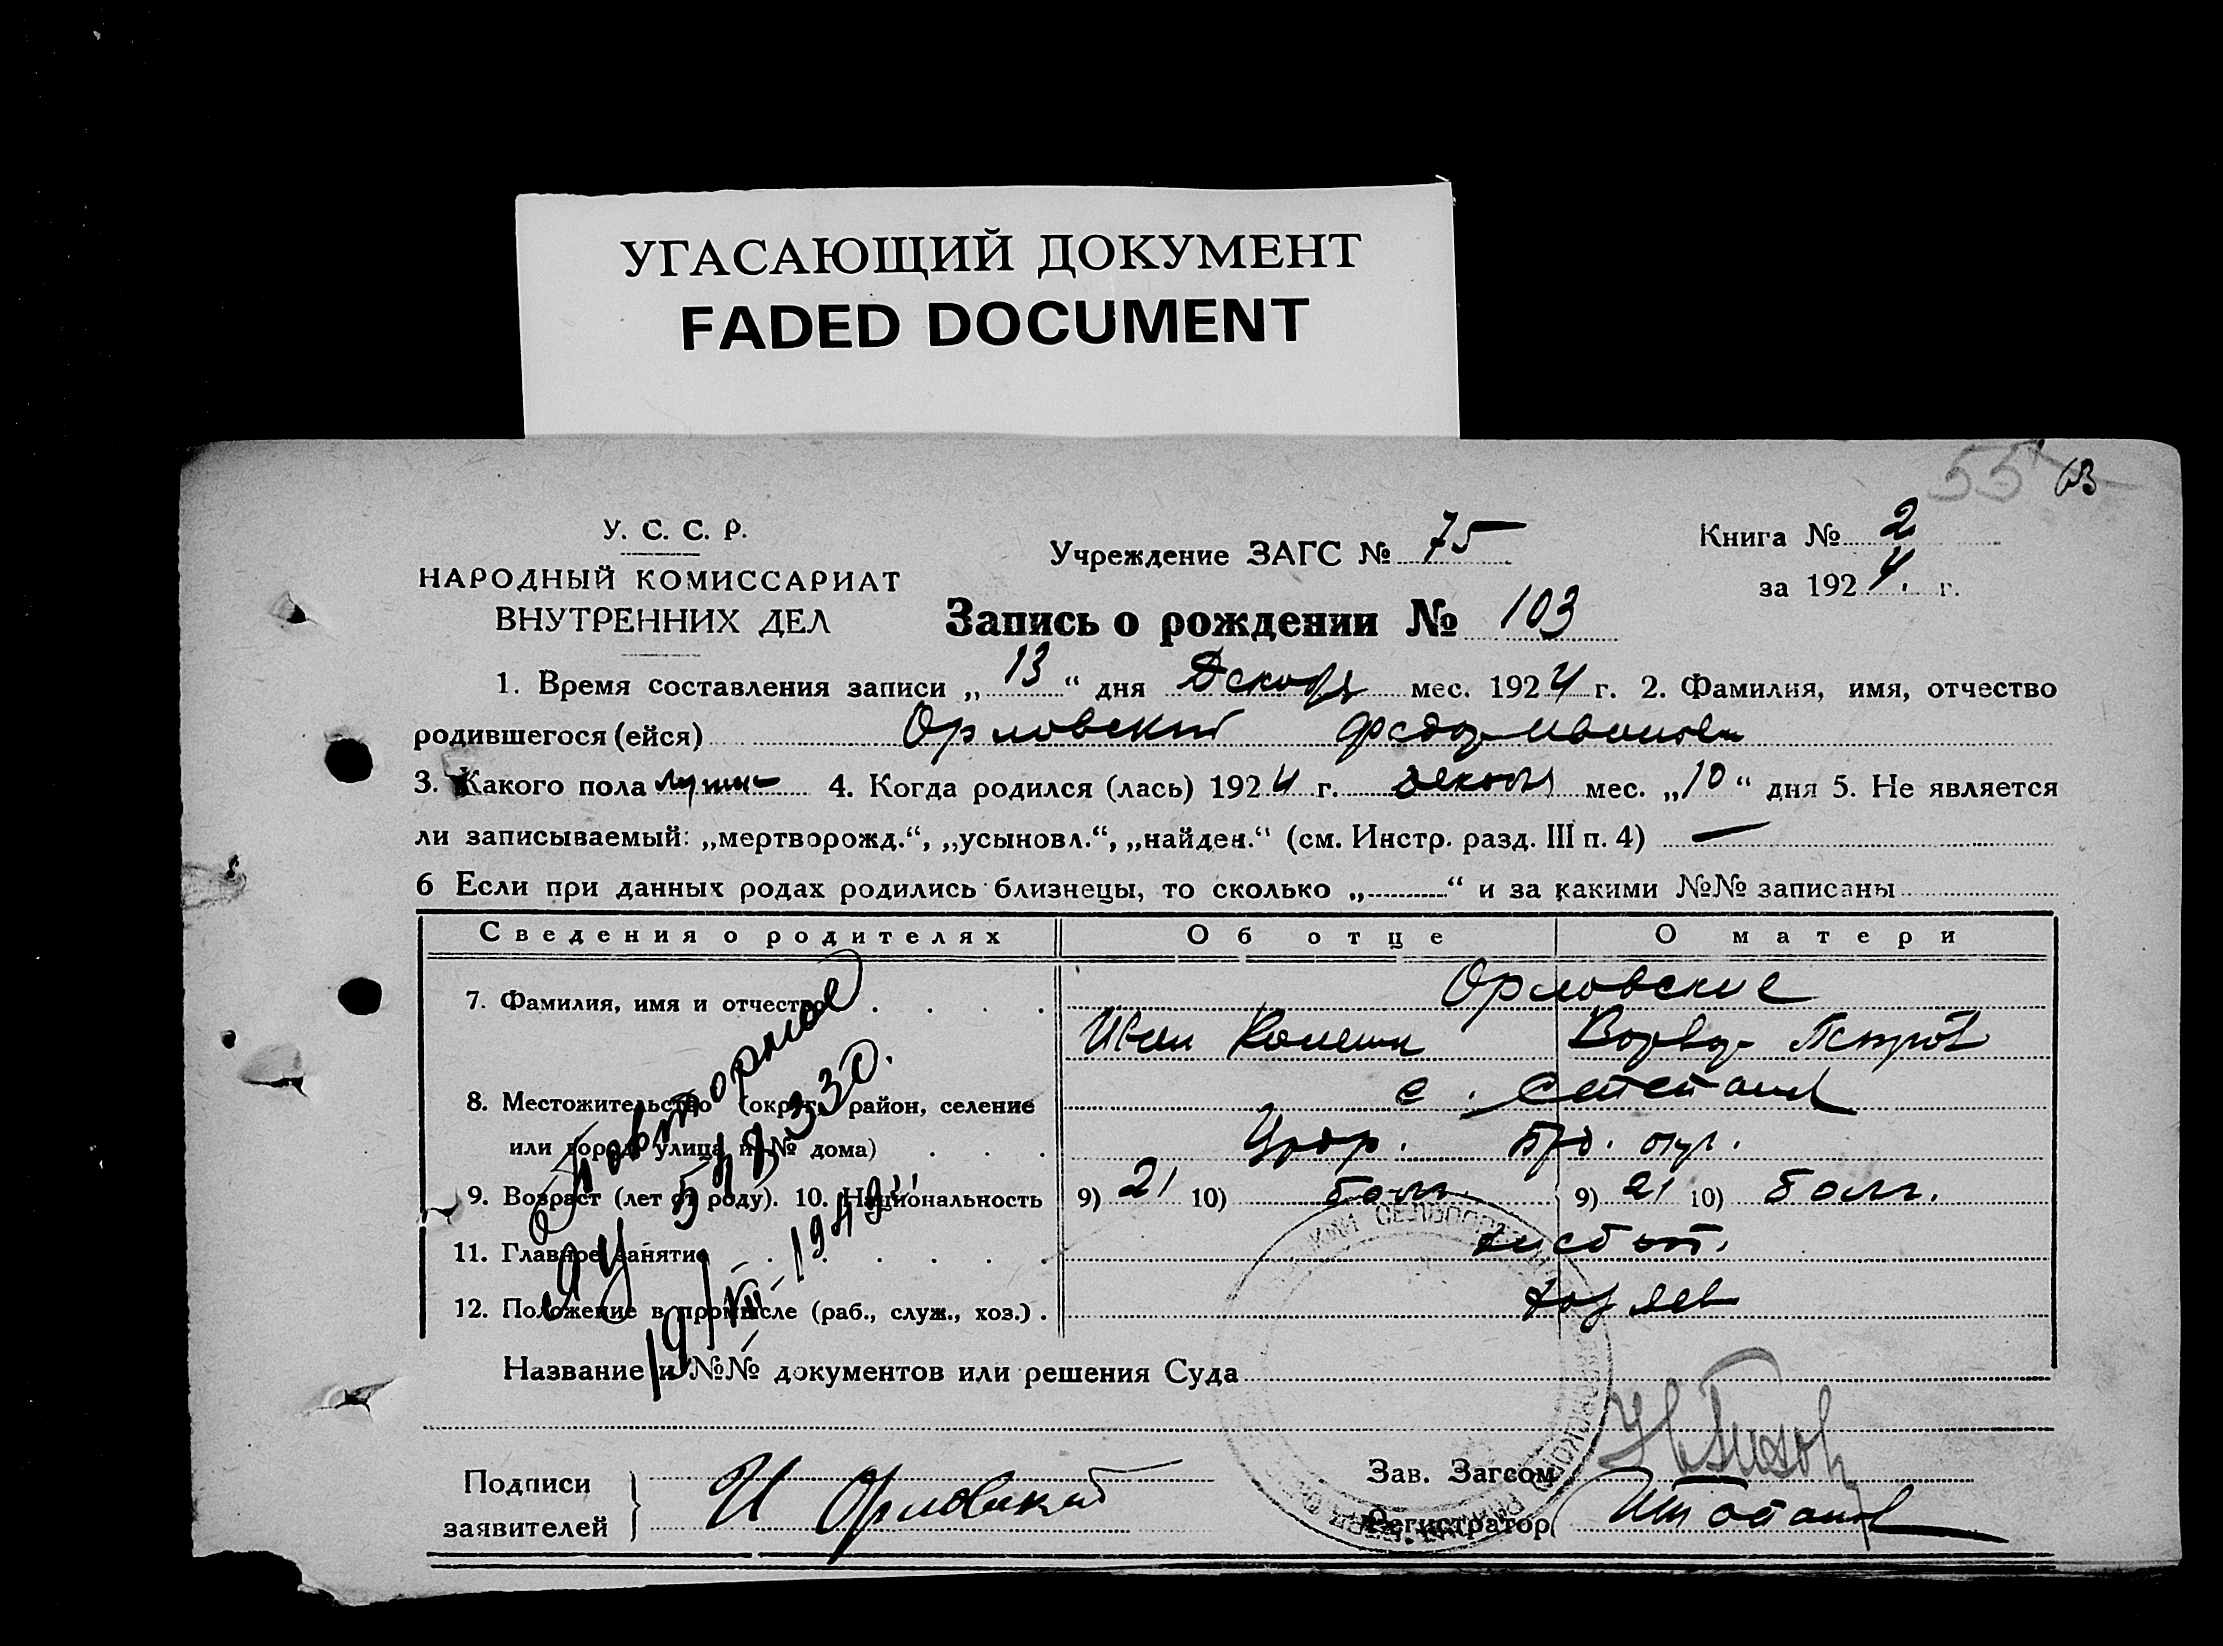 УГАСАЮЩИЙ ДОКУМЕНТ
FADED DOCUMENT
55 63
У. С. С. Р.
НАРОДНЫЙ КОМИССАРИАТ
ВНУТРЕННИХ ДЕЛ
Учреждение ЗАГС № 75
Книга № 2
за 1924 г.
Запись о рождении № 103
1. Время составления записи „13“ дня Декабр мес. 1924 г. 2. Фамилия, имя, отчество
родившегося (ейся) Орловский Федор Иванови
3. Какого пола мужс 4. Когда родился (лась) 1924 г. декабря мес. „10“ дня 5. Не является
ли записываемый: „мертворожд.“, „усыновл.“, „найден.“ (см. Инстр. разд. III п. 4) —
6 Если при данных родах родились близнецы, то сколько „ “ и за какими №№ записаны
Сведения о родителях Об отце О матери
7. Фамилия, имя и отчество . . . . Орловские
Иван Варвар Петров
8. Местожительство (округ, район, селение с.
или город, улица и № дома) . . . окр.
9. Возраст (лет от роду). 10. Национальность 9) 21 10) болг. 9) 21 10) болг.
11. Главное занятие . . . . . .
12. Положение в промысле (раб., служ., хоз.) .
Повторное
19/VII 1949
Название и №№ документов или решения Суда
Подписи
заявителей
И Орловский
Зав. Загсом
Регистратор